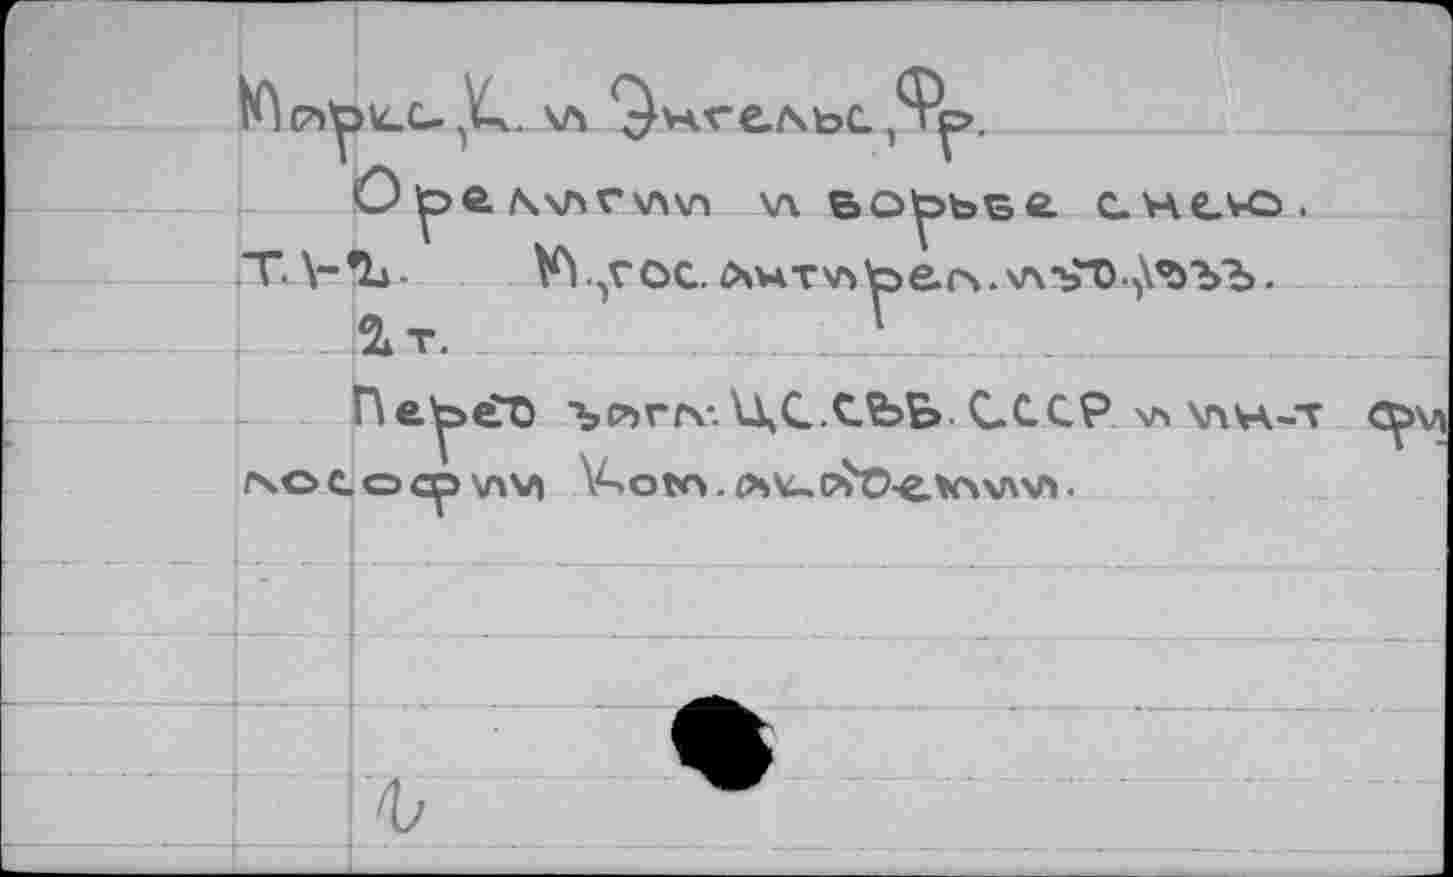 Маркс,К. и Энгельс,Фр.
О религии и борьбе с нею.
Т.1-2. М.,гос.антирел.изд.,1933.
2 т.
Перед загл: ЦС.СВБ. СССР и ин-т фи
лософии Ком.академии.